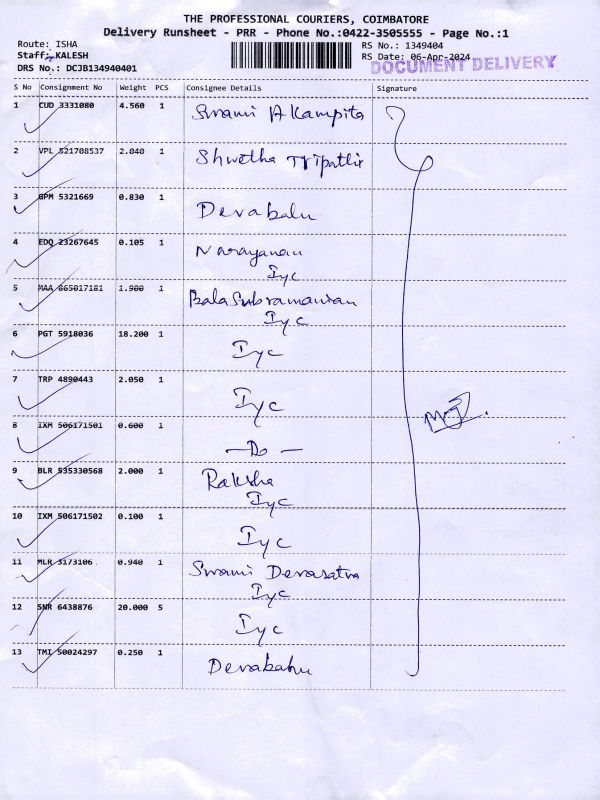 THE PROFESSIONAL COURIERS, COIMBATORE
Delivery Runsheet - PRR - Phone No.:0422-3505555 - Page No.:1
Route: ISHA RS No.: 1349404
Staff: KALESH RS Date: 06-Apr-2024
DRS No.: DCJB134940401 DOCUMENT DELIVERY
S No Consignment No Weight PCS Consignee Details Signature
1 CUD 3331080 4.560 1 Swami A Kampita
2 VPL 521708537 2.040 1 Shwetha Tripathi
3 GPM 5321669 0.830 1 Devabalu
4 EDQ 23267645 0.105 1 Narayanan
Iyc
5 MAA 865017181 1.900 1 Balasubramanian
Iyc
6 PGT 5918036 18.200 1 Iyc
7 TRP 4890443 2.050 1 Iyc
8 IXM 506171501 0.600 1 —Do—
9 BLR 535330568 2.000 1 Raksha
Iyc
10 IXM 506171502 0.100 1 Iyc
11 MLR 3173106 0.940 1 Swami Devasatva
Iyc
12 SNR 6438876 20.000 5 Iyc
13 TMI 50024297 0.250 1 Devabahu